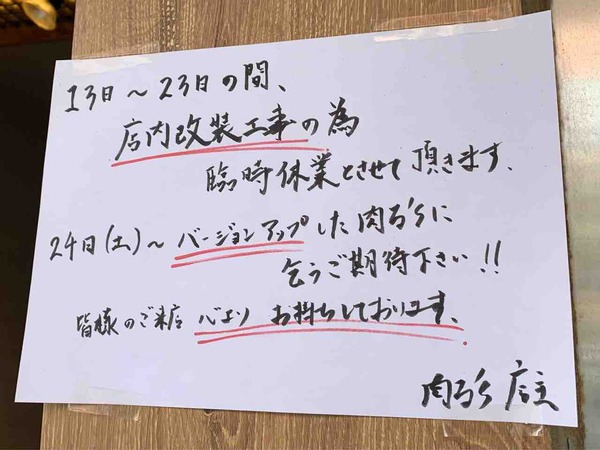 13日～23日の間、
店内改装工事の為
臨時休業とさせて頂きます。
24日(土)～バージョンアップした肉る'sに
乞うご期待下さい!!
皆様のご来店 心より お待ちしております。
肉る's 店主